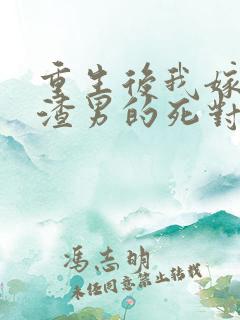 重生後我嫁
渣男的死對
馮志明
未任同意禁止转载